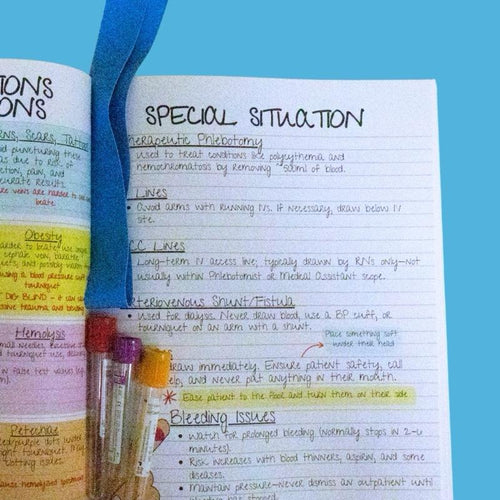 IONS
ONS
rns, Scars, Tattoo
oid puncturing these
as due to risk of
ction, pain, and
curate results.
Obesity
Hemolysis
Petechiae
SPECIAL SITUATION
herapeutic Phlebotomy
used to treat conditions like polycythemia and
hemochromatosis by removing ~500ml of blood.
Lines
• Avoid arms with running IVs. If necessary, draw below IV
site.
CC Lines
Long-term IV access line; typically drawn by RNs only—not
usually within Phlebotomist or Medical Assistant scope.
rteriovenous Shunt/Fistula
Used for dialysis. Never draw blood, use a BP cuff, or
tourniquet on an arm with a shunt.
Place something soft
under their head
draw immediately. Ensure patient safety, call
elp, and never put anything in their mouth.
Ease patient to the floor and turn them on their side
Bleeding Issues
• Watch for prolonged bleeding (normally stops in 2-6
minutes).
• Risk increases with blood thinners, aspirin, and some
diseases.
• Maintain pressure—never dismiss an outpatient until
has stopped